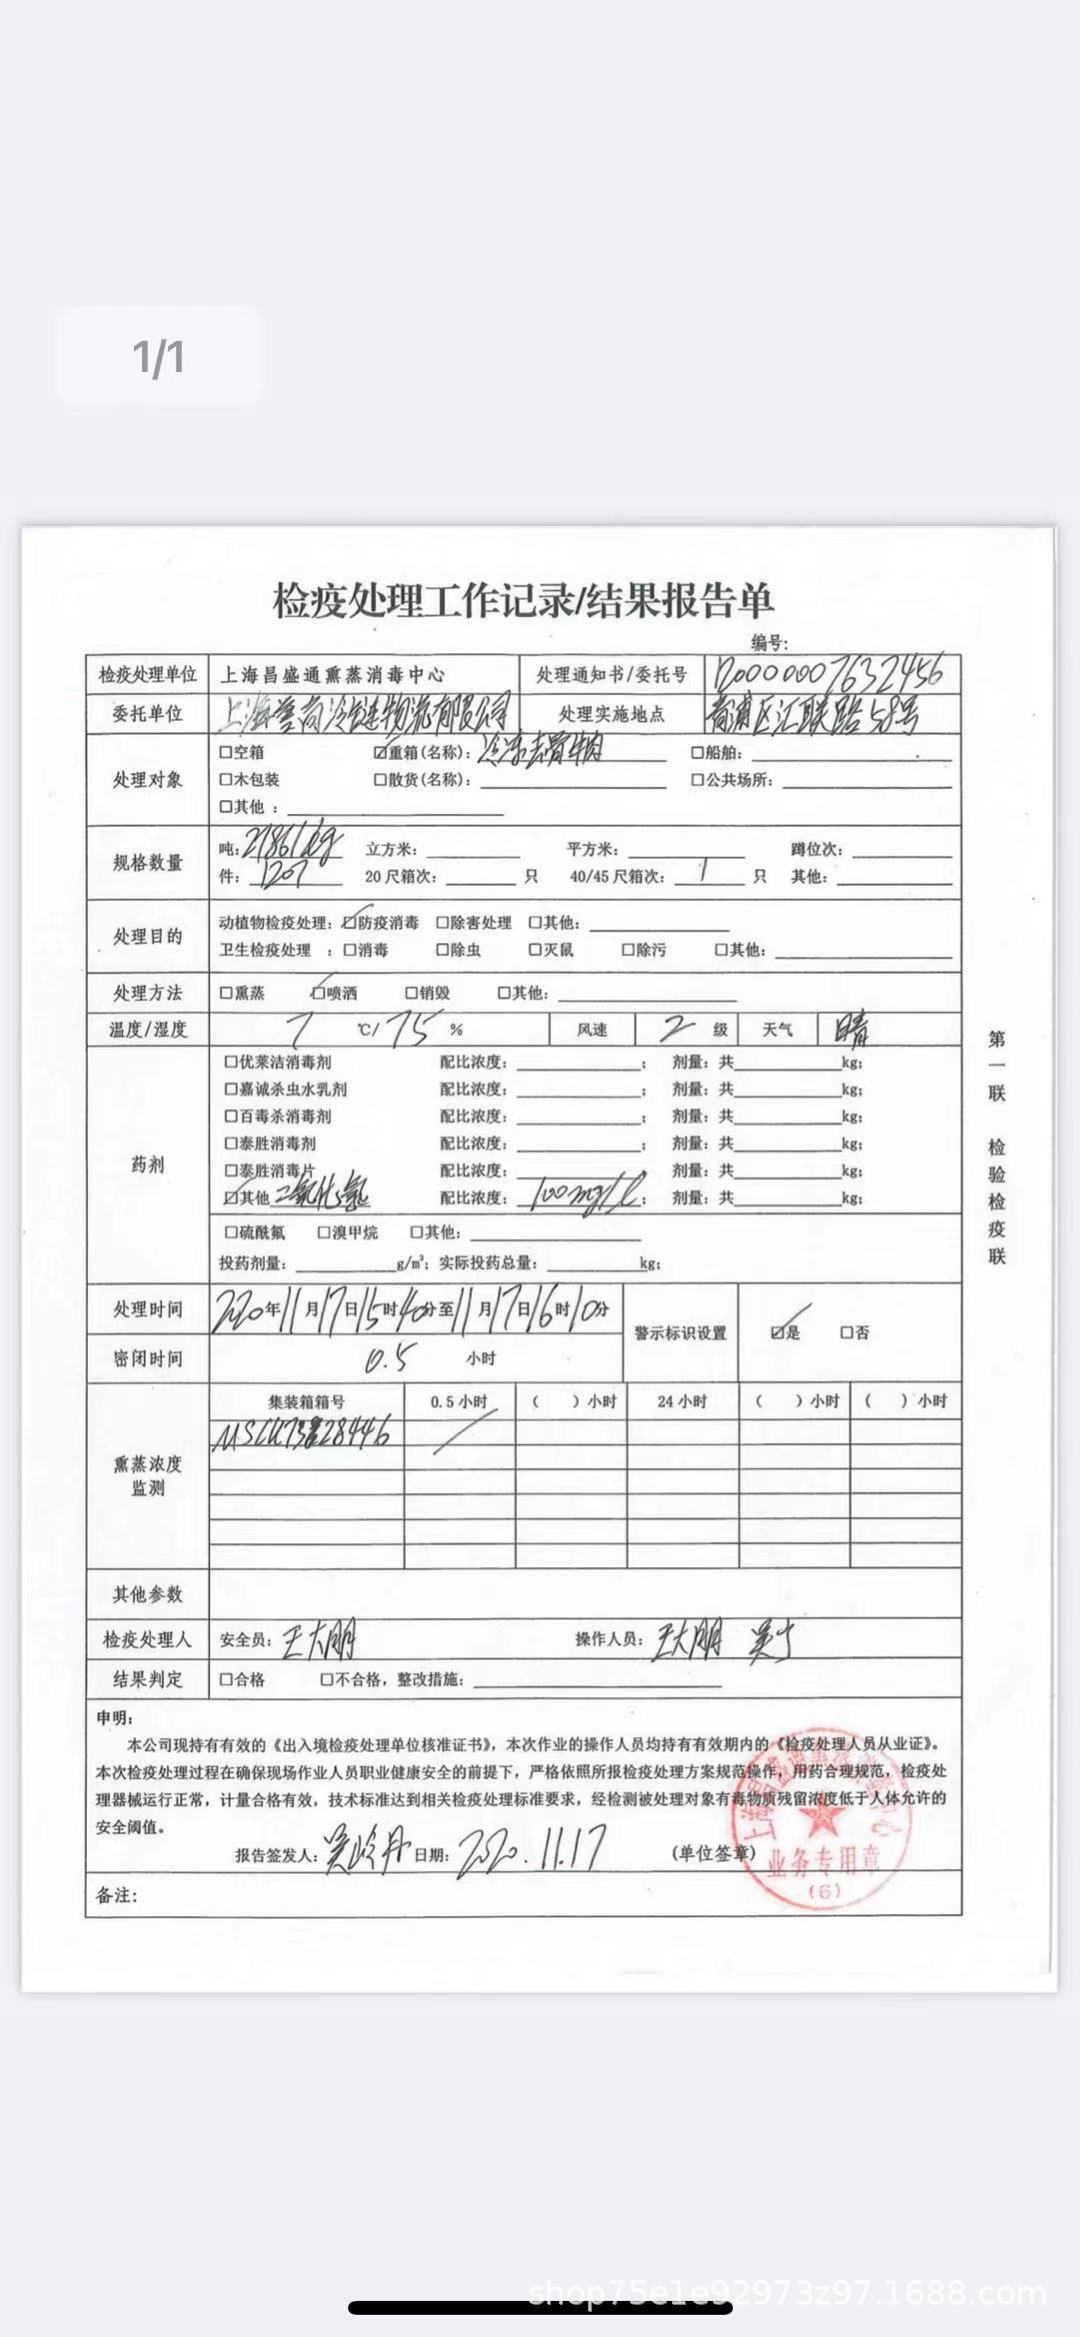 1/1
检疫处理工作记录/结果报告单
编号:
检疫处理单位 上海昌盛通熏蒸消毒中心 处理通知书/委托号
委托单位 上海誉尚冷链物流有限公司 处理实施地点 青浦区汇联路58号
处理对象 □空箱 ☑重箱(名称): 冷冻去骨牛肉 □船舶:
□木包装 □散货(名称): □公共场所:
□其他 :
规格数量 吨: 21861kg 立方米: 平方米: 蹲位次:
件: 1207 20尺箱次: 只 40/45尺箱次: 1 只 其他:
处理目的 动植物检疫处理: ☑防疫消毒 □除害处理 □其他:
卫生检疫处理 : □消毒 □除虫 □灭鼠 □除污 □其他:
处理方法 □熏蒸 ☑喷洒 □销毁 □其他:
温度/湿度 7 ℃/ 75 % 风速 2 级 天气 晴
药剂 □优莱洁消毒剂 配比浓度: ; 剂量: 共 kg;
□嘉诚杀虫水乳剂 配比浓度: ; 剂量: 共 kg;
□百毒杀消毒剂 配比浓度: ; 剂量: 共 kg;
□泰胜消毒剂 配比浓度: ; 剂量: 共 kg;
□泰胜消毒片 配比浓度: 剂量: 共 kg;
☑其他 二氧化氯 配比浓度: 100mg/l ; 剂量: 共 kg;
□硫酰氟 □溴甲烷 □其他:
投药剂量: g/m³; 实际投药总量: kg;
处理时间 2020年11月17日15时40分至11月17日16时10分 警示标识设置 ☑是 □否
密闭时间 0.5 小时
熏蒸浓度监测 集装箱箱号 0.5小时 ( )小时 24小时 ( )小时 ( )小时
其他参数
检疫处理人 安全员: 王大朋 操作人员: 王大朋
结果判定 □合格 □不合格，整改措施:
申明:
本公司现持有有效的《出入境检疫处理单位核准证书》，本次作业的操作人员均持有有效期内的《检疫处理人员从业证》。
本次检疫处理过程在确保现场作业人员职业健康安全的前提下，严格依照所报检疫处理方案规范操作，用药合理规范，检疫处
理器械运行正常，计量合格有效，技术标准达到相关检疫处理标准要求，经检测被处理对象有毒物质残留浓度低于人体允许的
安全阈值。
报告签发人: 日期: 2020.11.17 (单位签章)
业务专用章
(6)
备注:
第一联 检验检疫联
shop75e1e92973z97.1688.com